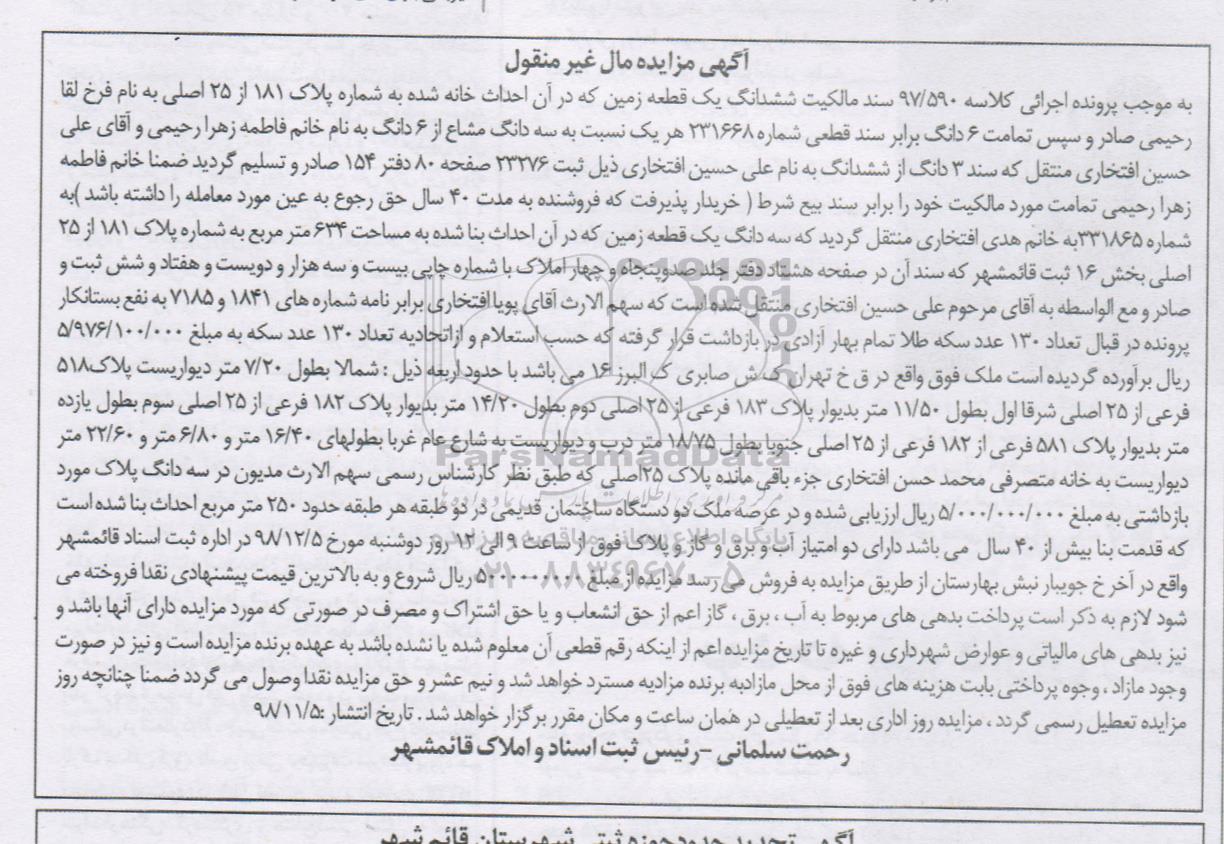 آگهی مزایده مال غیر منقول
به موجب پرونده اجرائی کلاسه ۹۷/۵۹۰ سند مالکیت ششدانگ یک قطعه زمین که در آن احداث خانه شده به شماره پلاک ۱۸۱ از ۲۵ اصلی به نام فرخ لقا
رحیمی صادر و سپس تمامت ۶ دانگ برابر سند قطعی شماره ۲۳۱۶۶۸ هر یک نسبت به سه دانگ مشاع از ۶ دانگ به نام خانم فاطمه زهرا رحیمی و آقای علی
حسین افتخاری منتقل که سند ۳ دانگ از ششدانگ به نام علی حسین افتخاری ذیل ثبت ۲۳۲۷۶ صفحه ۸۰ دفتر ۱۵۴ صادر و تسلیم گردید ضمنا خانم فاطمه
زهرا رحیمی تمامت مورد مالکیت خود را برابر سند بیع شرط ( خریدار پذیرفت که فروشنده به مدت ۴۰ سال حق رجوع به عین مورد معامله را داشته باشد )به
شماره ۳۳۱۸۶۵به خانم هدی افتخاری منتقل گردید که سه دانگ یک قطعه زمین که در آن احداث بنا شده به مساحت ۶۳۴ متر مربع به شماره پلاک ۱۸۱ از ۲۵
اصلی بخش ۱۶ ثبت قائمشهر که سند آن در صفحه هشتاد دفتر جلد صدوپنجاه و چهار املاک با شماره چاپی بیست و سه هزار و دویست و هفتاد و شش ثبت و
صادر و مع الواسطه به آقای مرحوم علی حسین افتخاری منتقل شده است که سهم الارث آقای پویا افتخاری برابر نامه شماره های ۱۸۴۱ و ۷۱۸۵ به نفع بستانکار
پرونده در قبال تعداد ۱۳۰ عدد سکه طلا تمام بهار آزادی در بازداشت قرار گرفته که حسب استعلام و ازاتحادیه تعداد ۱۳۰ عدد سکه به مبلغ ۵/۹۷۶/۱۰۰/۰۰۰
ریال برآورده گردیده است ملک فوق واقع در ق خ تهران ک ش صابری ک البرز ۱۶ می باشد با حدود اربعه ذیل : شمالا بطول ۷/۲۰ متر دیواریست پلاک۵۱۸
فرعی از ۲۵ اصلی شرقا اول بطول ۱۱/۵۰ متر بدیوار پلاک ۱۸۳ فرعی از ۲۵ اصلی دوم بطول ۱۴/۲۰ متر بدیوار پلاک ۱۸۲ فرعی از ۲۵ اصلی سوم بطول یازده
متر بدیوار پلاک ۵۸۱ فرعی از ۱۸۲ فرعی از ۲۵ اصلی جنوبا بطول ۱۸/۷۵ متر درب و دیواریست به شارع عام غربا بطولهای ۱۶/۴۰ متر و ۶/۸۰ متر و ۲۲/۶۰ متر
دیواریست به خانه متصرفی محمد حسن افتخاری جزء باقی مانده پلاک ۲۵اصلی که طبق نظر کارشناس رسمی سهم الارث مدیون در سه دانگ پلاک مورد
بازداشتی به مبلغ ۵/۰۰۰/۰۰۰/۰۰۰ ریال ارزیابی شده و در عرصه ملک دو دستگاه ساختمان قدیمی در دو طبقه هر طبقه حدود ۲۵۰ متر مربع احداث بنا شده است
که قدمت بنا بیش از ۴۰ سال می باشد دارای دو امتیاز آب و برق و گاز و پلاک فوق از ساعت ۹ الی ۱۲ روز دوشنبه مورخ ۹۸/۱۲/۵ در اداره ثبت اسناد قائمشهر
واقع در آخر خ جویبار نبش بهارستان از طریق مزایده به فروش می رسد مزایده از مبلغ ۵۰۰۰۰۰۰۰۰۰ ریال شروع و به بالاترین قیمت پیشنهادی نقدا فروخته می
شود لازم به ذکر است پرداخت بدهی های مربوط به آب ، برق ، گاز اعم از حق انشعاب و یا حق اشتراک و مصرف در صورتی که مورد مزایده دارای آنها باشد و
نیز بدهی های مالیاتی و عوارض شهرداری و غیره تا تاریخ مزایده اعم از اینکه رقم قطعی آن معلوم شده یا نشده باشد به عهده برنده مزایده است و نیز در صورت
وجود مازاد ، وجوه پرداختی بابت هزینه های فوق از محل مازادبه برنده مزادیه مسترد خواهد شد و نیم عشر و حق مزایده نقدا وصول می گردد ضمنا چنانچه روز
مزایده تعطیل رسمی گردد ، مزایده روز اداری بعد از تعطیلی در همان ساعت و مکان مقرر برگزار خواهد شد . تاریخ انتشار :۹۸/۱۱/۵
رحمت سلمانی -رئیس ثبت اسناد و املاک قائمشهر
ParsNamadData
پایگاه اطلاع رسانی مناقصه و مزایده
۰۲۱-۸۸۳۴۹۶۷۰-۵
آگهی تحدید حدود حوزه ثبتی شهرستان قائم شهر